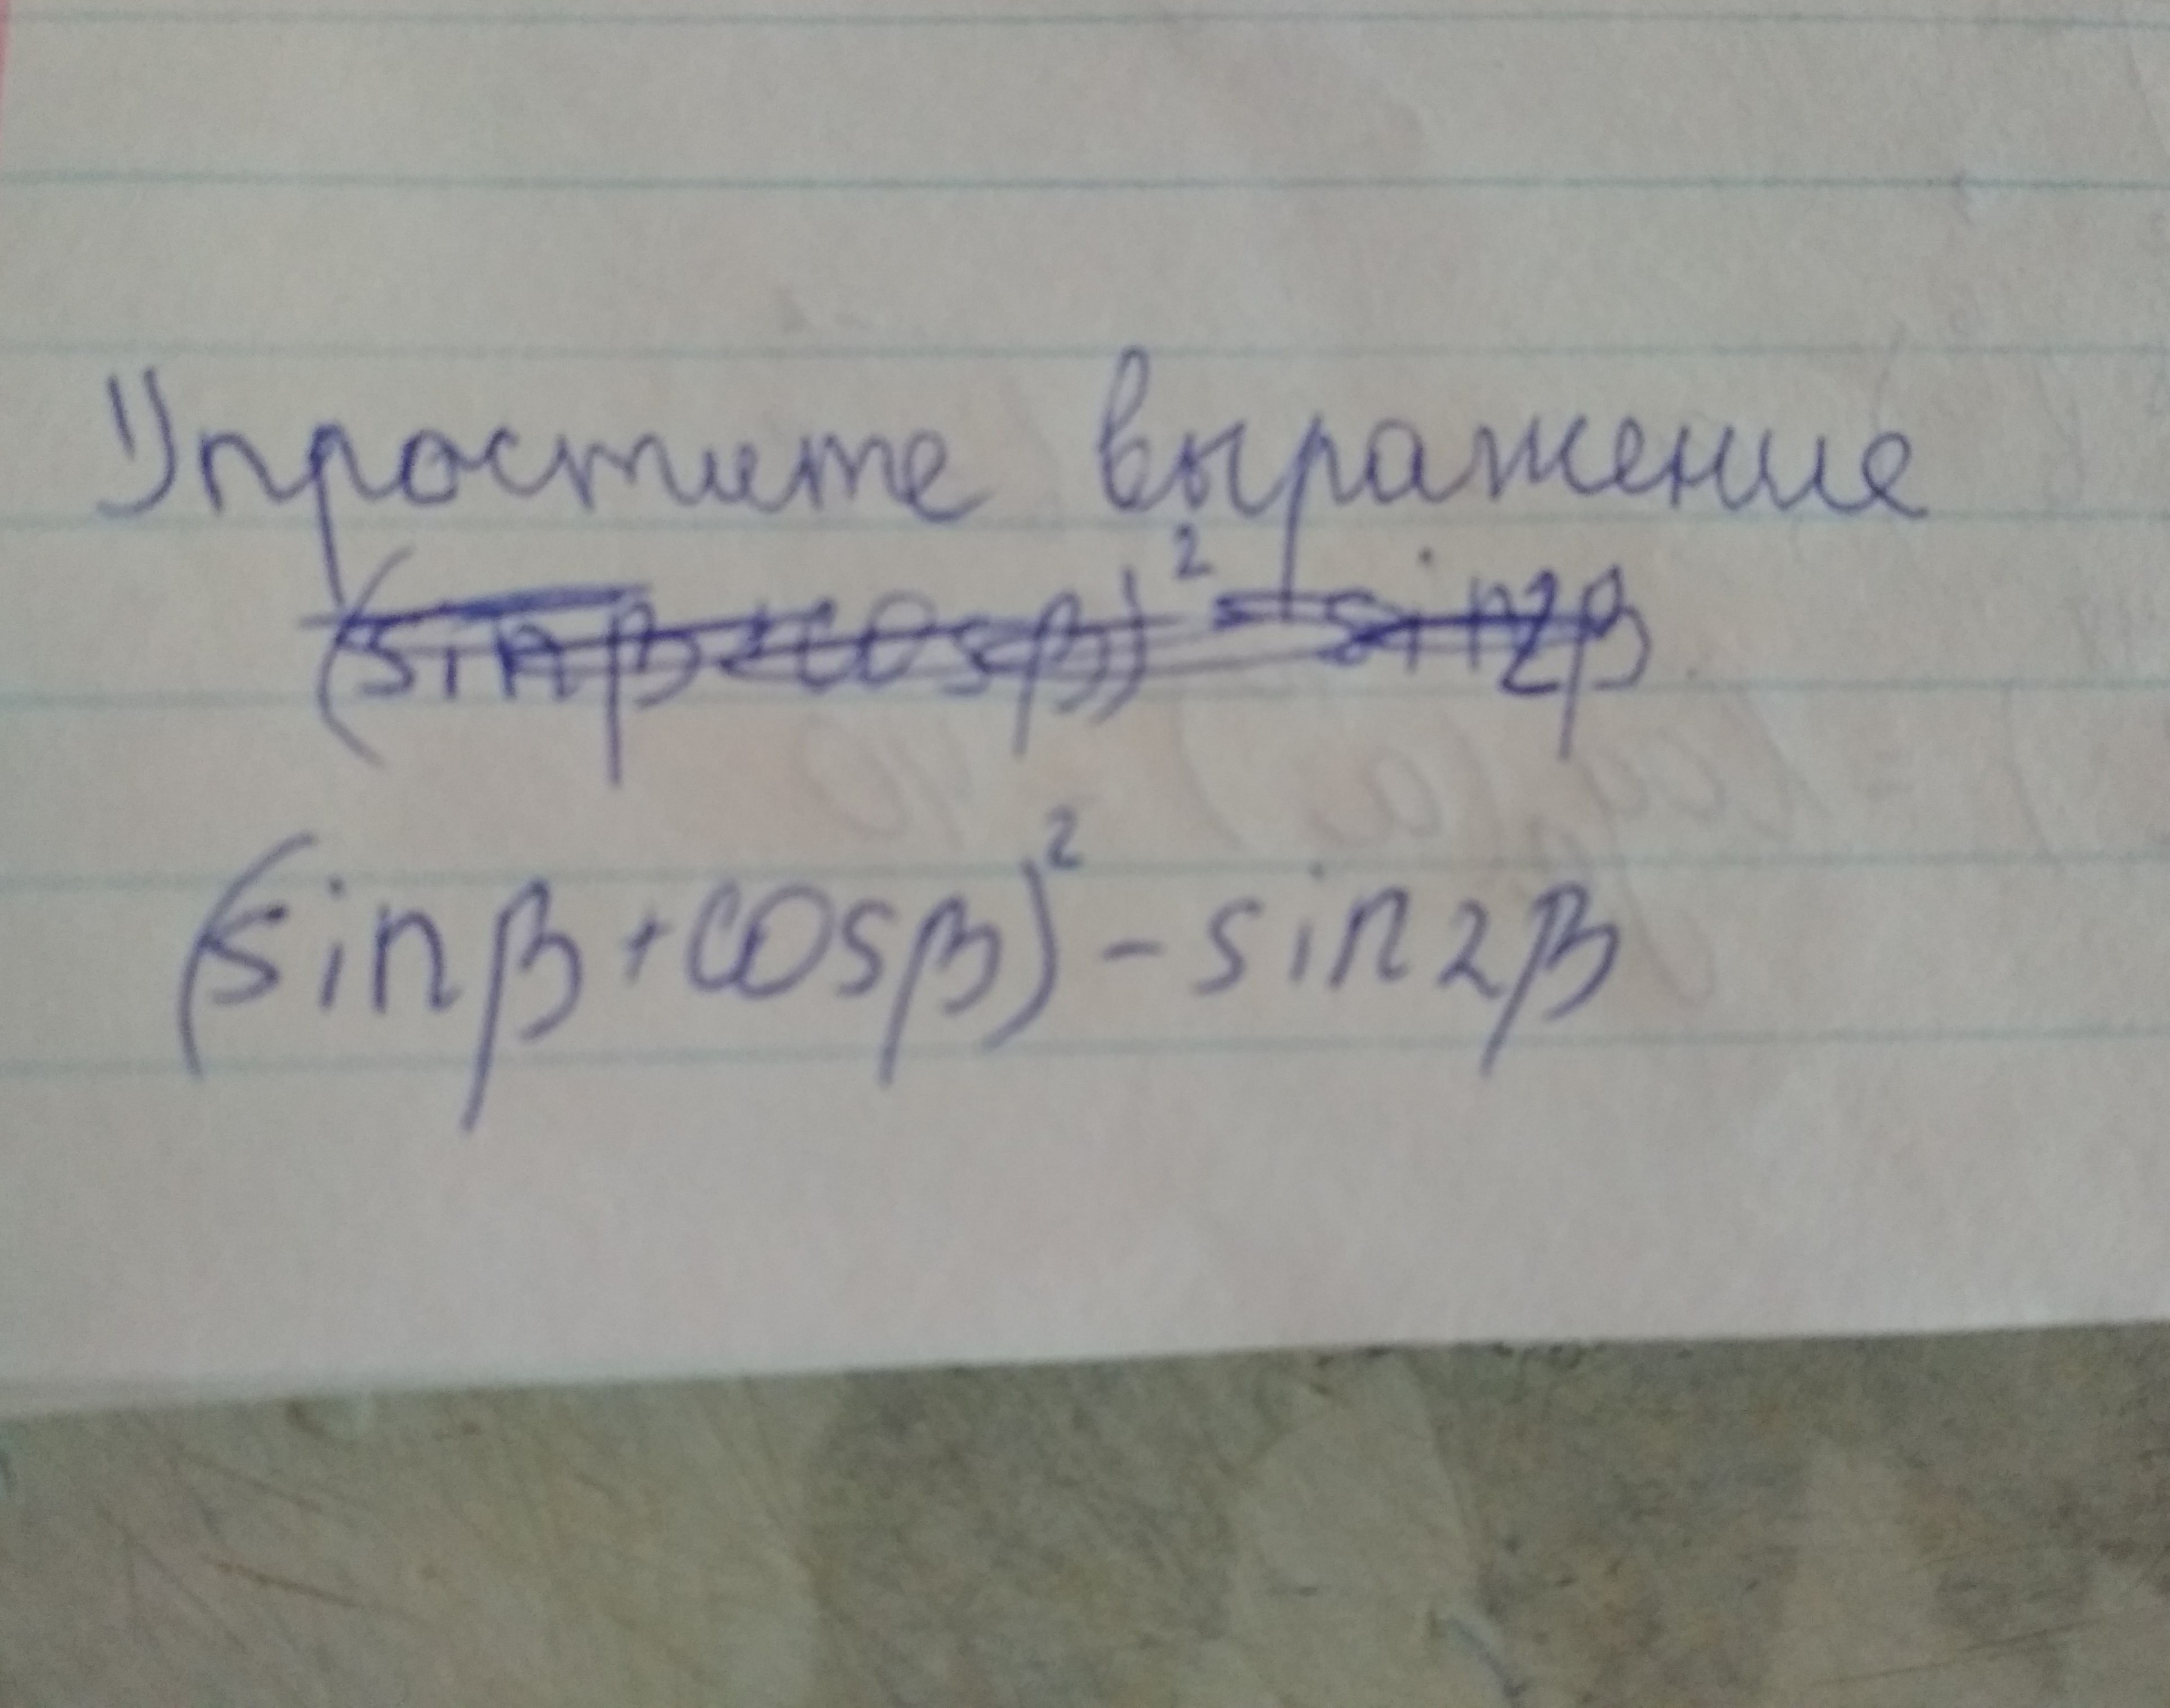 Упростите выражение
(sinβ+cosβ)² - sin2β
(sinβ+cosβ)² - sin2β